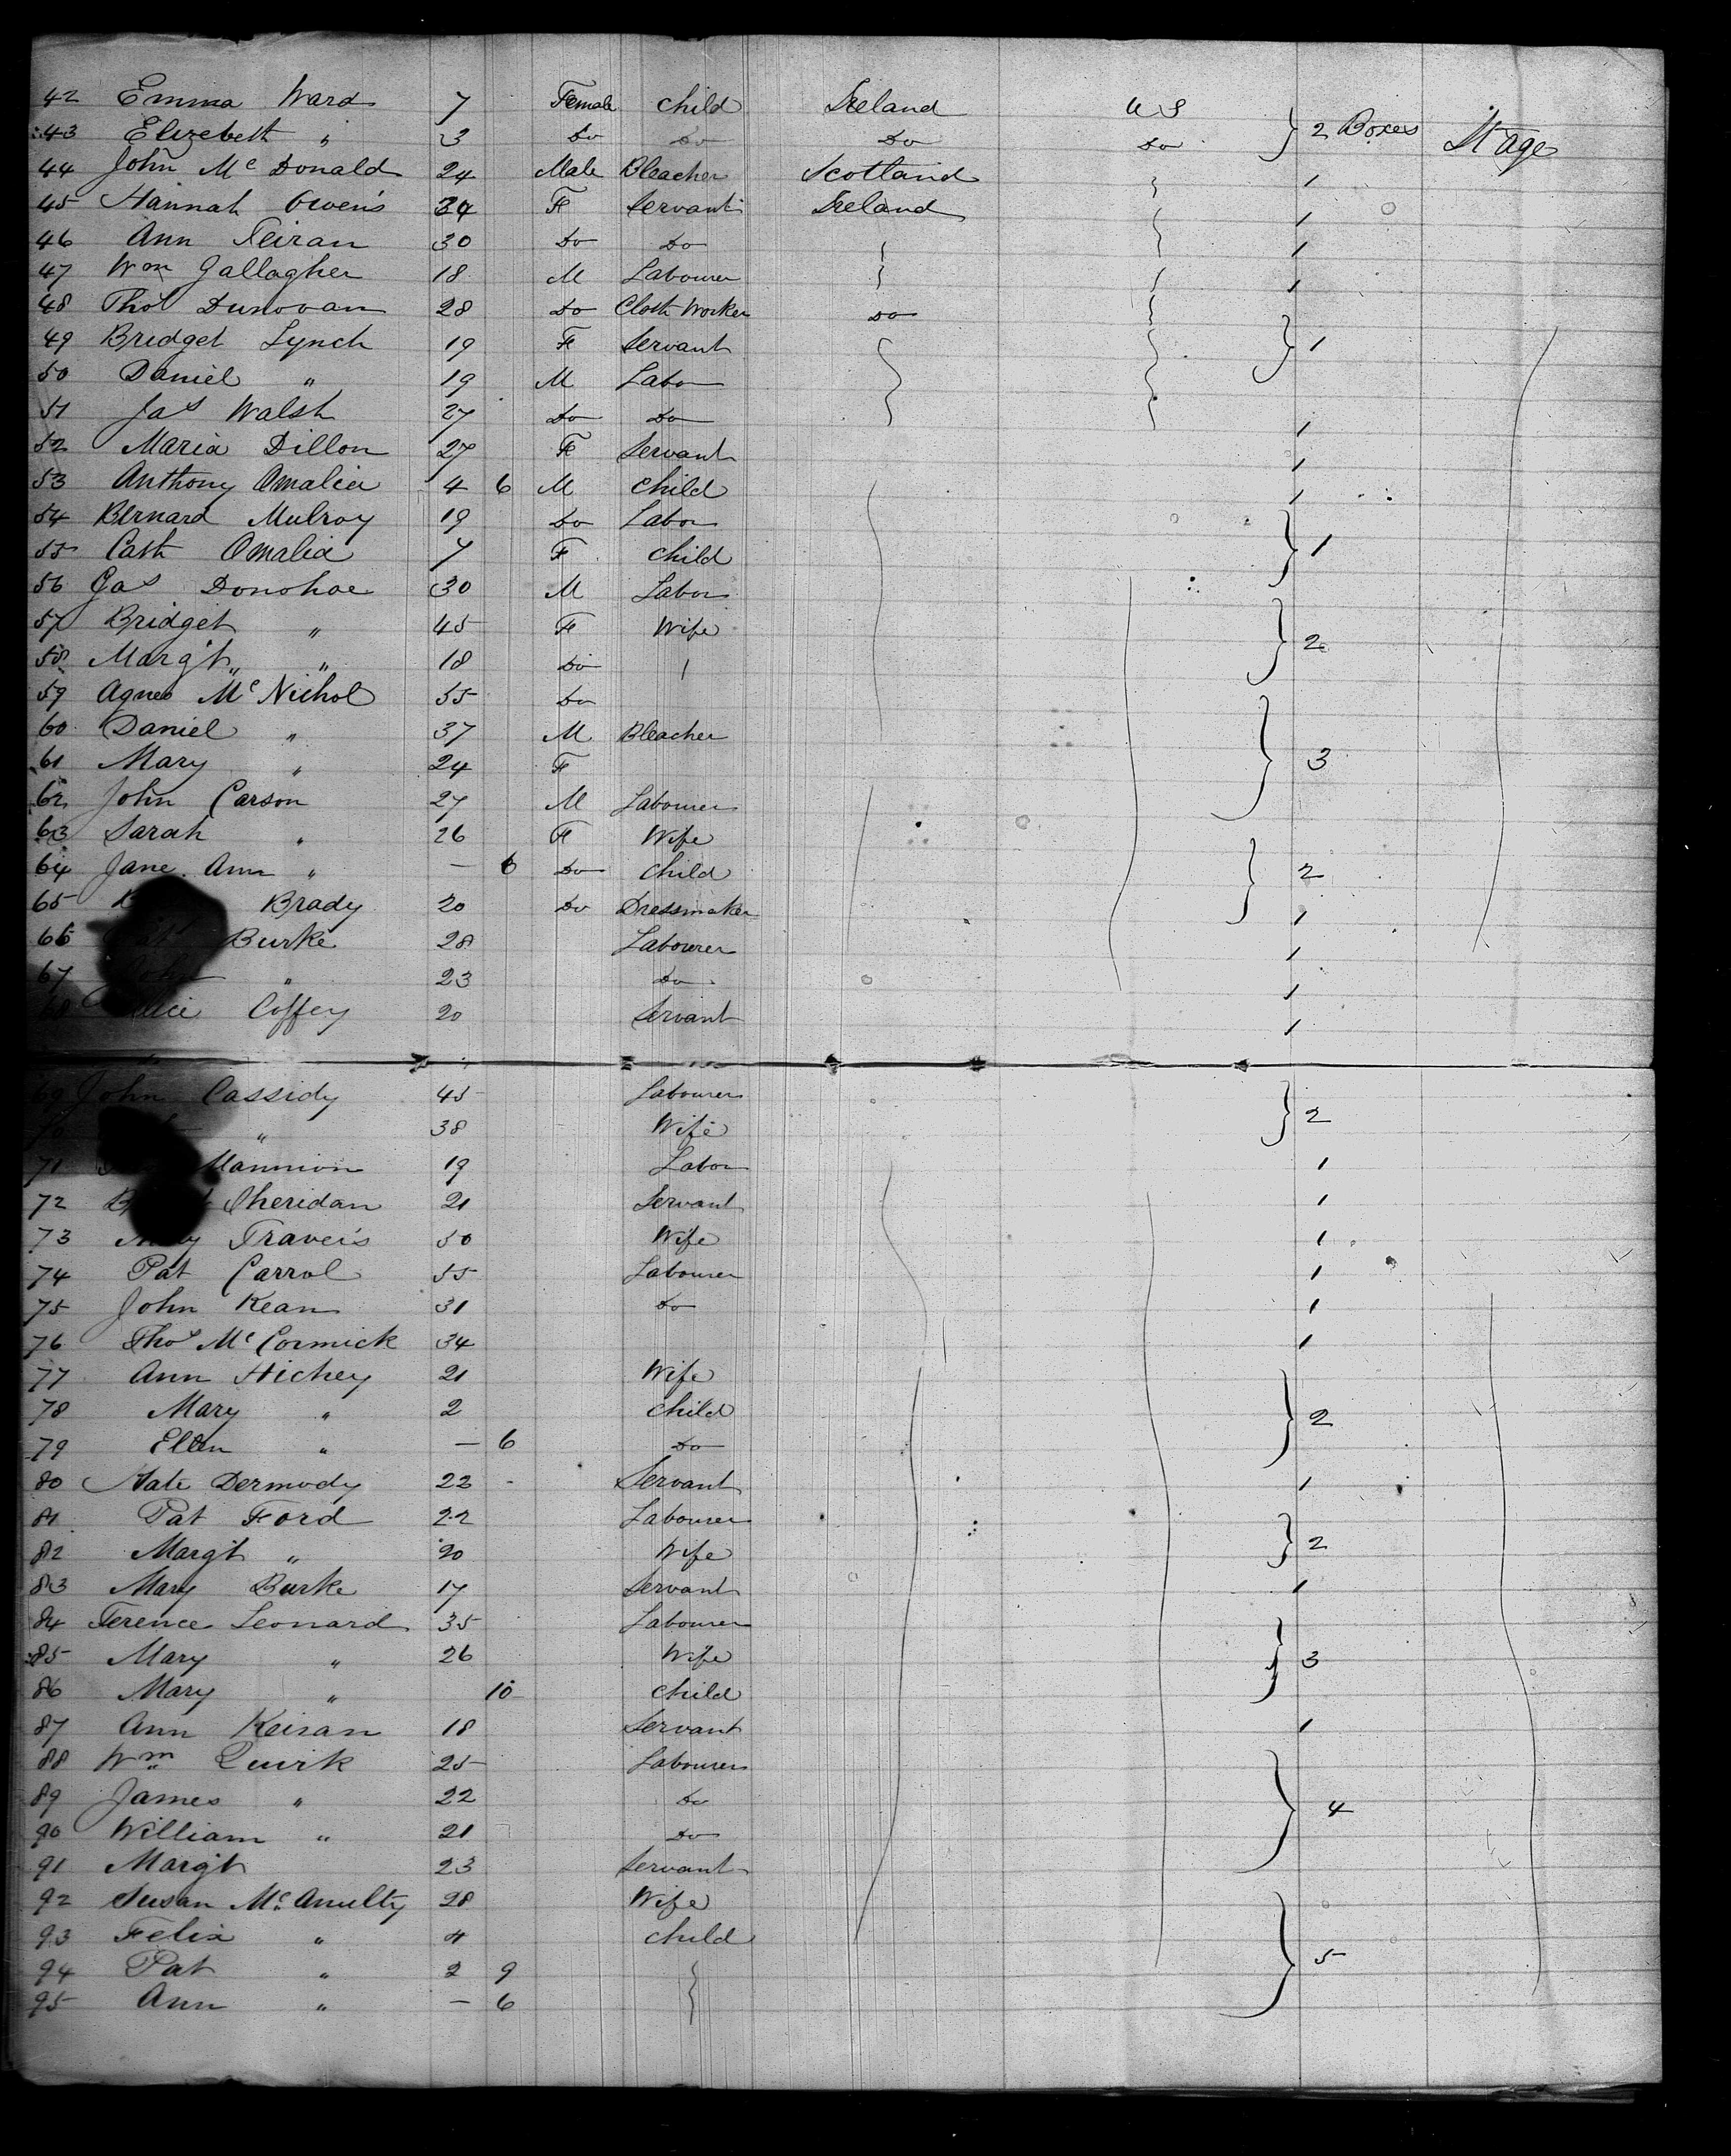 42 Emma Ward 7 Female Child Ireland U S
43 Elizebeth " 3 Do Do Do Do } 2 Boxes Stage
44 John Mc Donald 24 Male Bleacher Scotland 1
45 Hannah Owens 34 Fe Servant Ireland 1
46 Ann 30 Do Do 1
47 Wm Gallagher 18 M Labourer 1
48 Thos Dunovan 28 Do Cloth Worker Do
49 Bridget Lynch 19 Fe Servant } 1
50 Daniel " 19 M Labor
51 Jas Walsh 27 Do Do 1
52 Maria Dillon 27 Fe Servant 1
53 Anthony Omalia 4 6 M Child 1
54 Bernard Mulroy 19 Do Labor
55 Cath Omalia 7 F Child } 1
56 Jas Donohoe 30 M Labor
57 Bridget " 45 Fe Wife } 2
58 Margt " 18 Do
59 Agnes Mc Nichol 55 Do
60 Daniel " 37 M Bleacher
61 Mary " 24 Fe } 3
62 John Carson 27 M Labourer
63 Sarah " 26 Fe Wife
64 Jane Ann " — 6 Do Child } 2
65 Brady 20 Do Dressmaker 1
66 Pat Burke 28 Labourer 1
67 John " 23 Do 1
68 Coffey 20 Servant 1
69 John Cassidy 45 Labourer
" 38 Wife } 2
71 Mannion 19 Labor 1
72 Sheridan 21 Servant 1
73 Mary Travers 50 Wife 1
74 Pat Carrol 55 Labourer 1
75 John Kean 31 Do 1
76 Thos Mc Cormick 34 1
77 Ann Hickey 21 Wife
78 Mary " 2 Child } 2
79 Ellen " — 6 Do
80 Kate Dermody 22 Servant 1
81 Pat Ford 22 Labourer
82 Margt " 20 Wife } 2
83 Mary Burke 17 Servant 1
84 Terence Leonard 35 Labourer
85 Mary " 26 Wife } 3
86 Mary " 10 Child
87 Ann Keiran 18 Servant 1
88 Wm Quirk 25 Labourer
89 James " 22 Do } 4
90 William " 21 Do
91 Margt 23 Servant
92 Susan Mc Anulty 28 Wife
93 Felix " 4 Child
94 Pat " 2 9 } 5
95 Ann " — 6